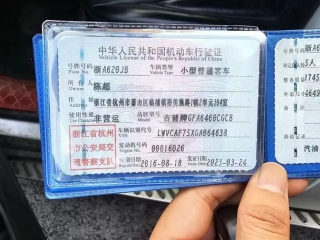 中华人民共和国机动车行驶证
Vehicle License of the People's Republic of China
号牌号码 浙A620JB 车辆类型 小型普通客车
Plate No. Vehicle Type
所有人 陈超
Owner
住址 浙江省杭州市萧山区临浦镇
Address
使用性质 非营运 品牌型号 GFA6460CGCB
Use Character Model
浙江省杭州市公安局交通警察支队
车辆识别代号 LWVCAF75XGA064638
VIN
发动机号码 00016026
Engine No.
注册日期 2016-08-18 发证日期 2023-03-24
Register Date Issue Date
号牌号码
5人
4649
汽油